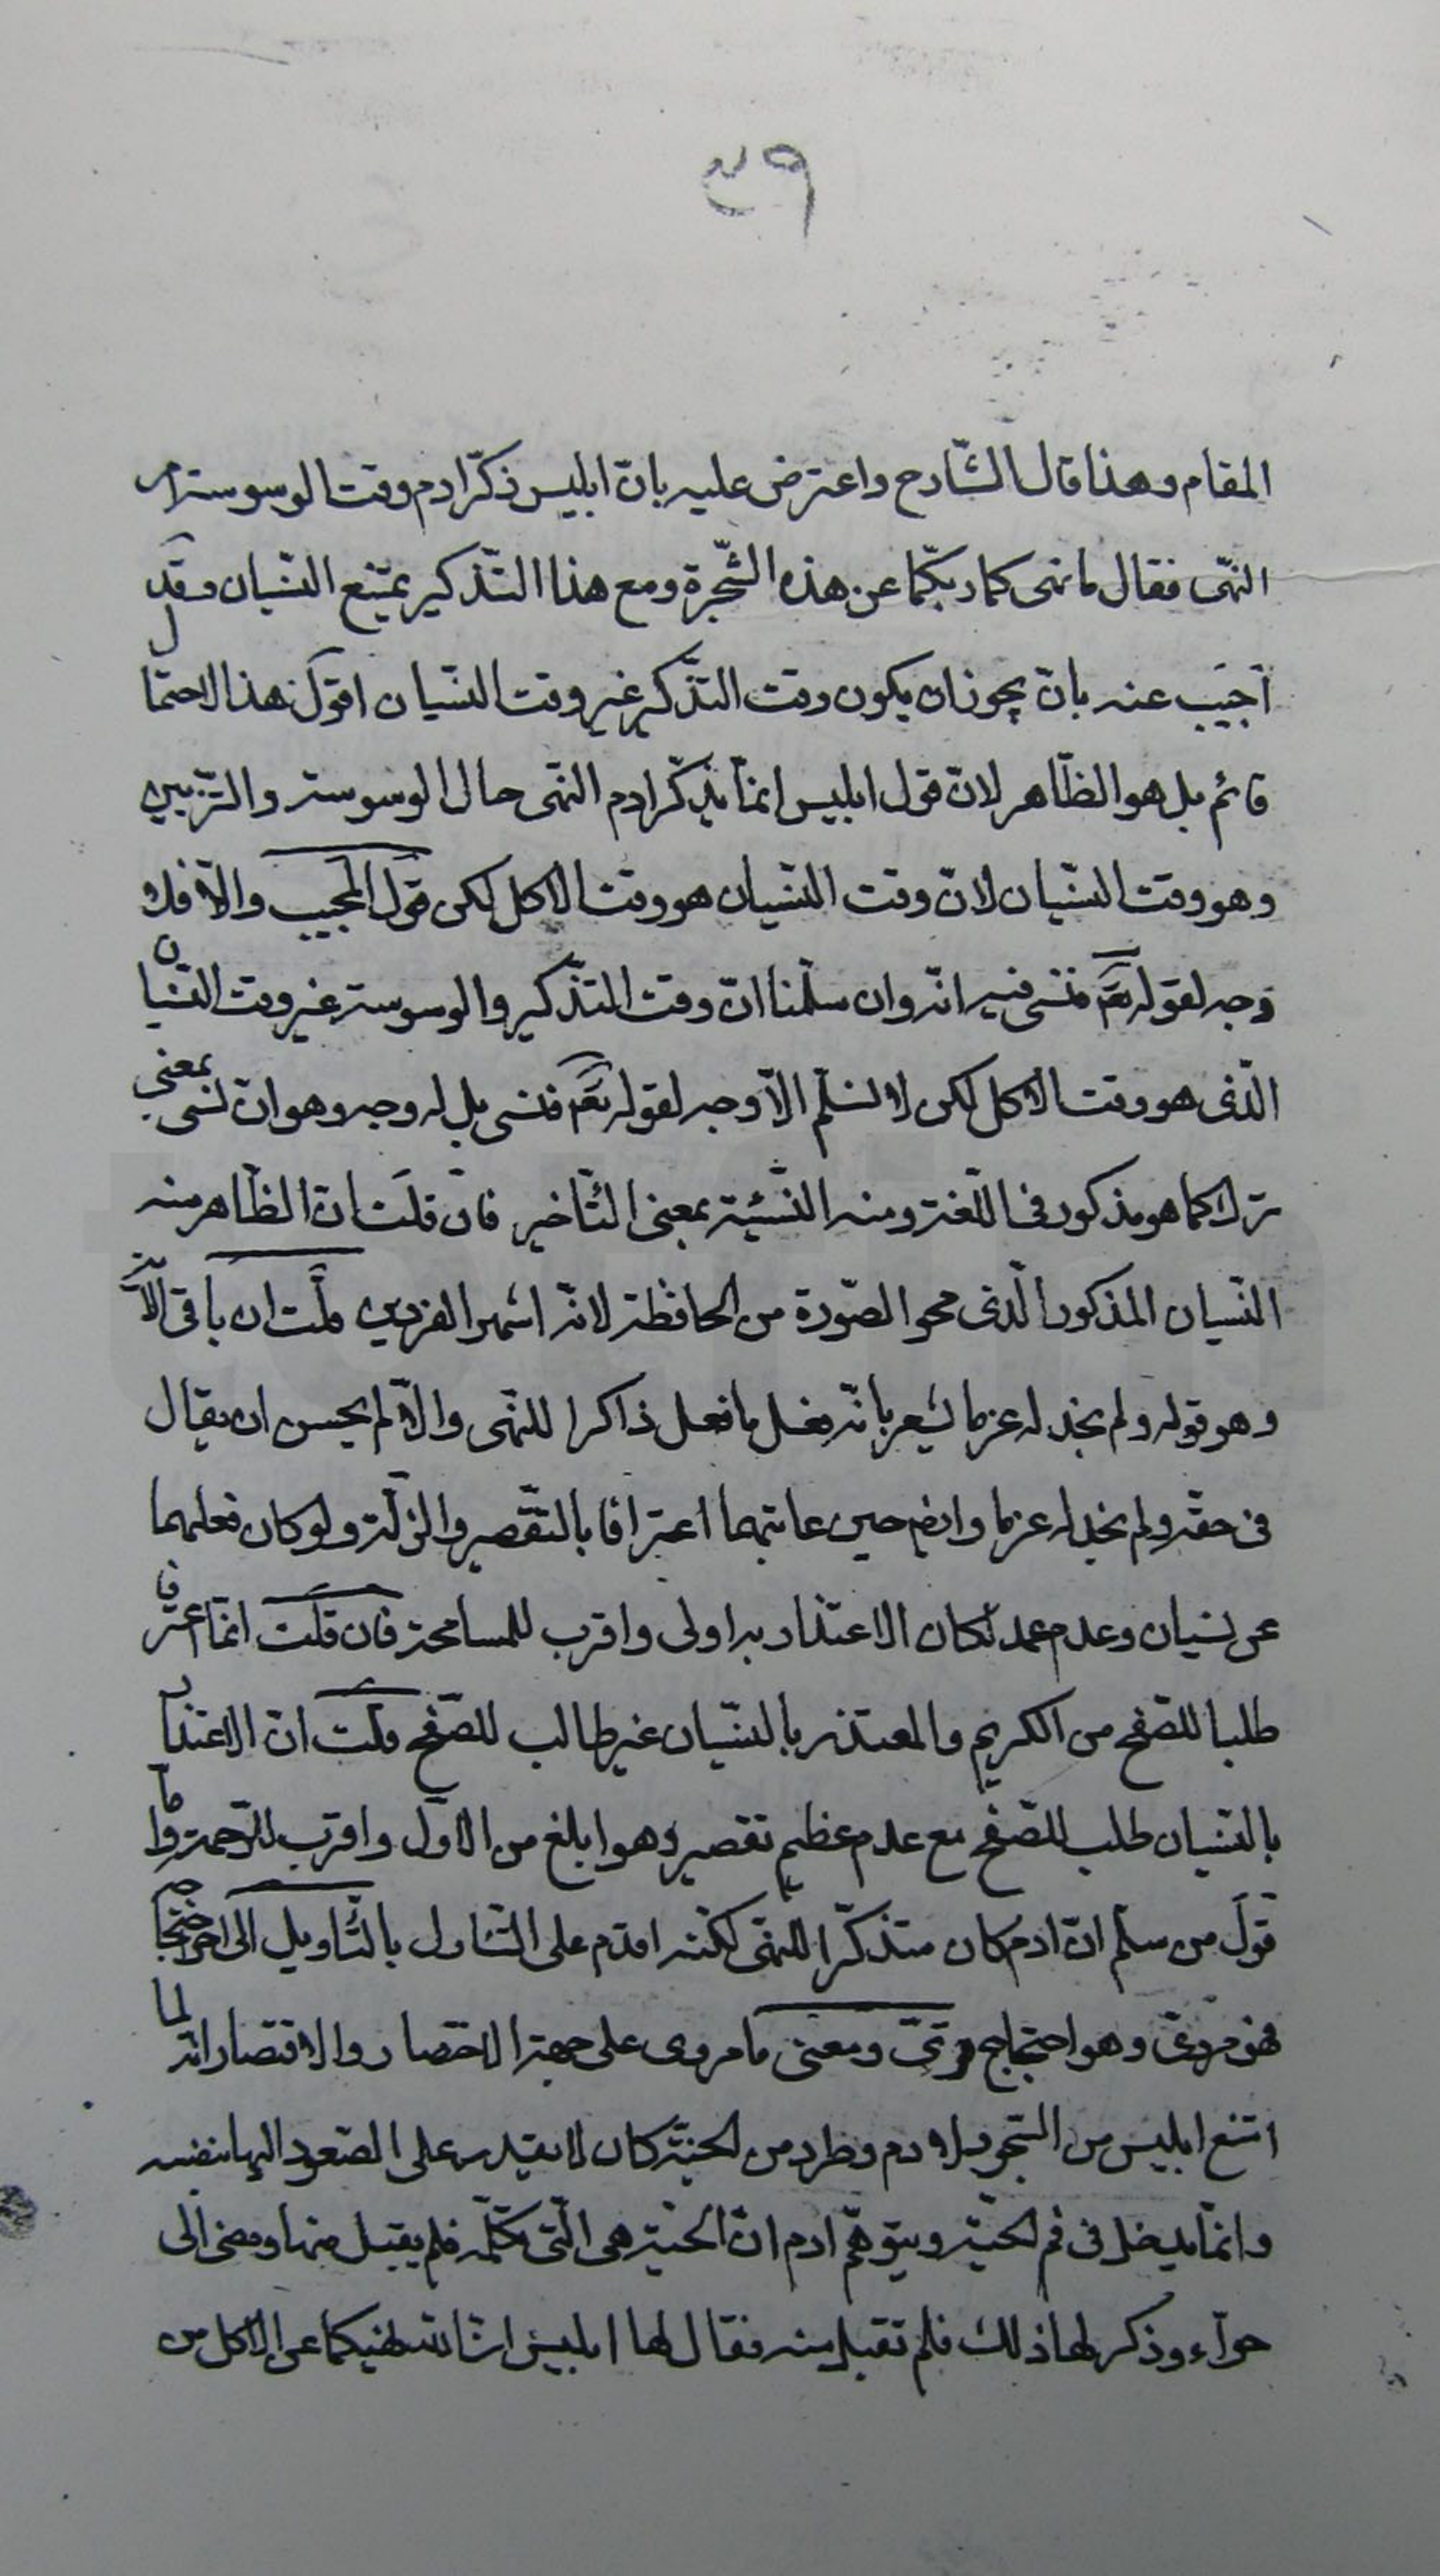 ٣٩
المقام وهذا قال الشّارح واعترض عليه بانّ ابليس ذكّر ادم وقت الوسوسة امر
النّهى فقال ما نهى كما ربّكما عن هذه الشّجرة ومع هذا التّذكير يمتنع النّسيان وقد
اجيب عنه بانّ يجوز ان يكون وقت التّذكير غير وقت النّسيان اقول هذا الاحتمال
قائم بل هو الظّاهر لانّ قول ابليس انمّا يذكّر ادم النّهى حال الوسوسة والتّزيين
وهو وقت النّسيان لانّ وقت النّسيان هو وقت الاكل لكن قول المجيب والاّ فلا
وجه لقوله تعَ فنسى فيه انّه وان سلّمنا انّ وقت التّذكير والوسوسة غير وقت النّسيان
الّذى هو وقت الاكل لكن لا نسلّم الاّ وجه لقوله تعَ فنسى بل له وجه وهو انّ نسى بمعنى
ترك كما هو مذكور فى اللّغة ومنه النّسئية بمعنى التّاخير فان قلت انّ الظّاهر منه
النّسيان المذكور الّذى محو الصّورة من الحافظة لانّه اشهر الفردين قلت ان باقى الاية
وهو قوله ولم نجد له عزما يشعر بانّه فعل ما فعل ذاكرا للنّهى والاّ لم يحسن ان يقال
فى حقّه ولم نجد له عزما وايضا حين عاتبهما اعترافا بالتّقصير والزّلة ولو كان فعلهما
عن نسيان وعدم عمد لكان الاعتذار به اولى واقرب للمسامحة فان قلت انمّا اعترف
طلبا للصّفح من الكريم والمعتذر بالنّسيان غير طالب للصّفح قلت انّ الاعتذار
بالنّسيان طلب للصّفح مع عدم عظيم تقصير وهو ابلغ من الاوّل واقرب للرّحمة وامّا
قول من سلّم انّ ادم كان متذكّرا للنّهى لكنّه اقدم على التّناول بالتّاويل الى اخر احتجاجه
فهو مروىّ وهو احتجاج قوىّ ومعنى ما مروى على جهة الاختصار والاقتصار انّه لما
امتنع ابليس من السّجود لادم وطرد من الجنّة كان لا يقدر على الصّعود اليها بنفسه
وانمّا يدخل فى فم الحيّة ويتوهّم ادم انّ الحيّة هى الّتى تكلّمه فلم يقبل منها ومضى الى
حوّاء وذكر لها ذلك فلم تقبل منه فقال لها ابليس انّ الله نهيكما عن الاكل من